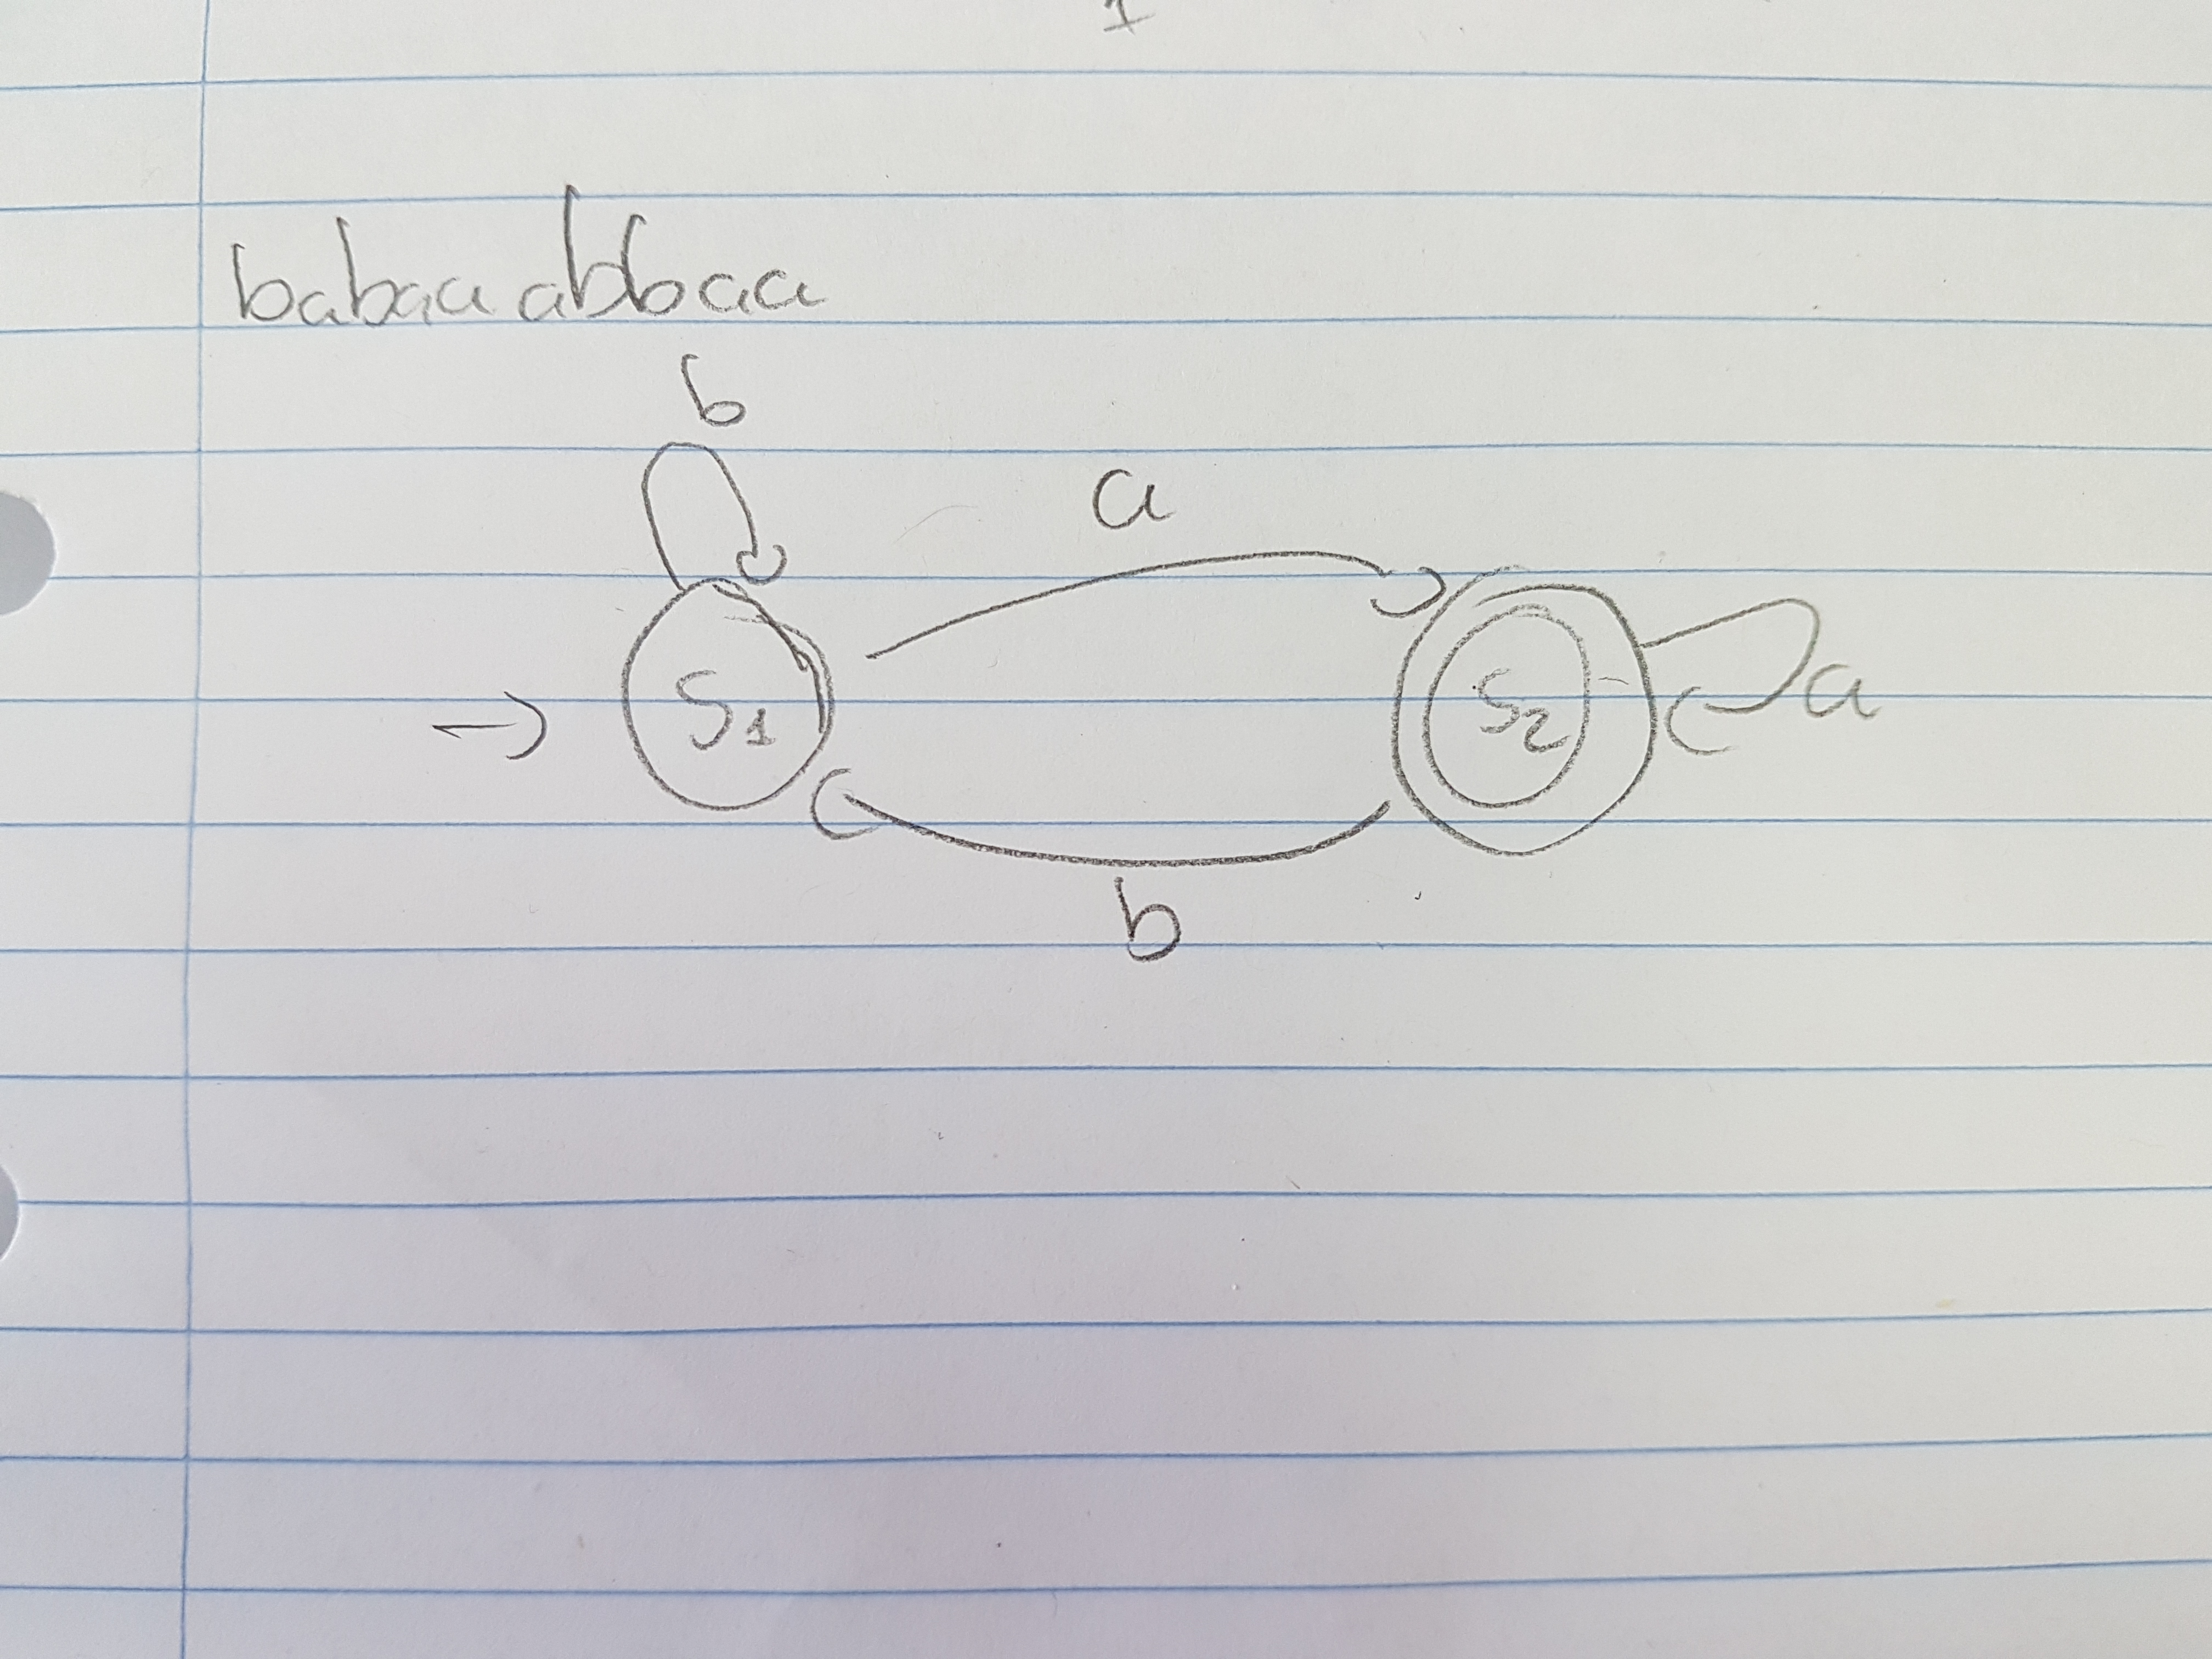 1
babaaabbaa
b
a
S1 S2 a
b